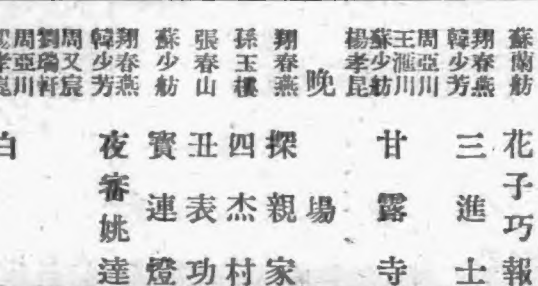 蘇蘭舫
花子巧報
翔春燕
韓少芳
三進士
周亞川
王滙川
蘇少舫
楊孝昆
甘露寺
晚場
翔春燕
探親家
孫玉樓
四杰村
張春山
丑表功
蘇少舫
寳連燈
翔春燕
韓少芳
夜審姚達
周又宸
劉瑞軒
周亞川
白